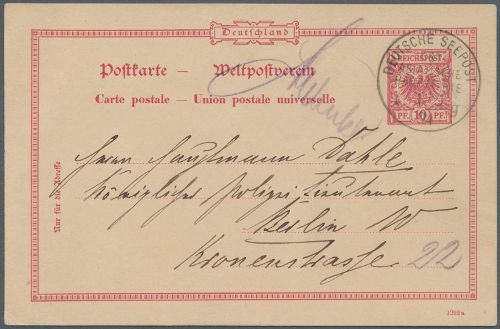 Deutschland
Postkarte — Weltpostverein
Carte postale — Union postale universelle
DEUTSCHE SEEPOST
REICHSPOST
PF. 10 PF.
Nur für die Adresse
Herrn Hauptmann Dahle
Königlicher Polizei Lieutenant
Berlin W
Kronenstrasse 22
1292a